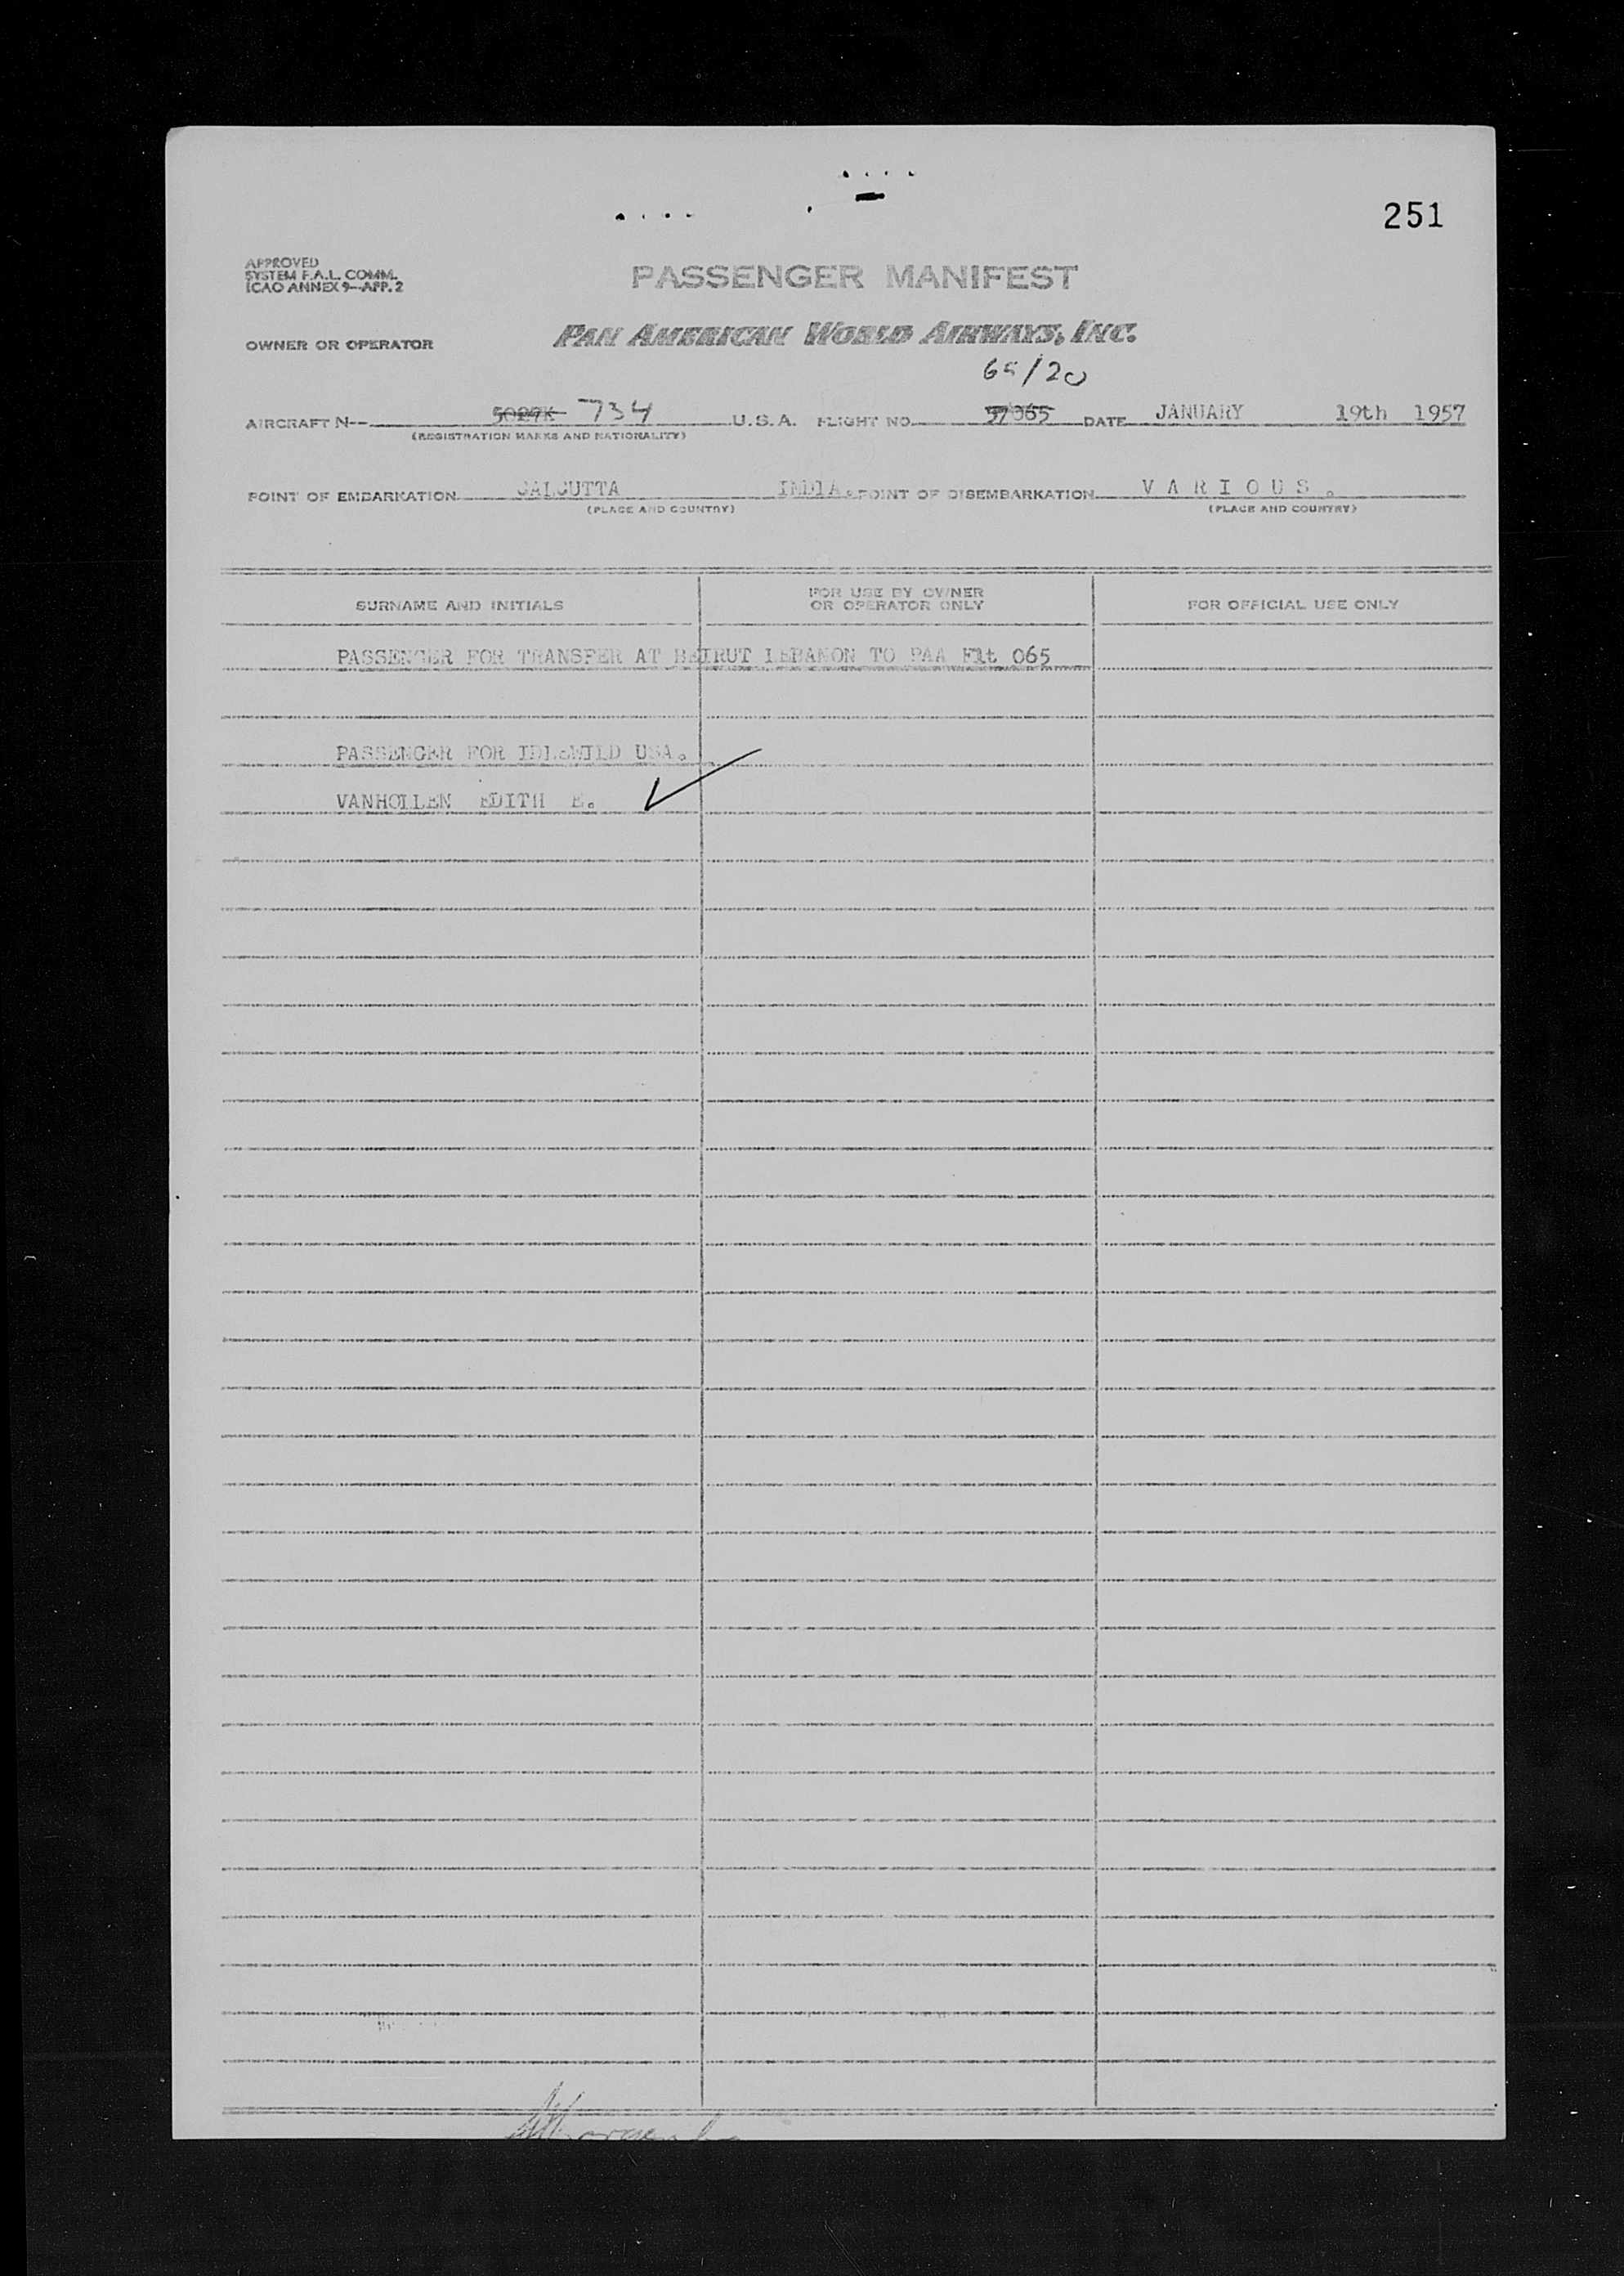 251
APPROVED
SYSTEM F.A.L. COMM.
ICAO ANNEX 9--APP. 2
PASSENGER MANIFEST
OWNER OR OPERATOR PAN AMERICAN WORLD AIRWAYS, INC.
65/20
AIRCRAFT N-- 5027K 734 U.S.A. FLIGHT NO. 57065 DATE JANUARY 19th 1957
(REGISTRATION MARKS AND NATIONALITY)
POINT OF EMBARKATION CALCUTTA INDIA. POINT OF DISEMBARKATION V A R I O U S .
(PLACE AND COUNTRY) (PLACE AND COUNTRY)
SURNAME AND INITIALS FOR USE BY OWNER OR OPERATOR ONLY FOR OFFICIAL USE ONLY
PASSENGER FOR TRANSFER AT BEIRUT LEBANON TO PAA Flt 065
PASSENGER FOR IDLEWILD USA.
VANHOLLEN EDITH E.